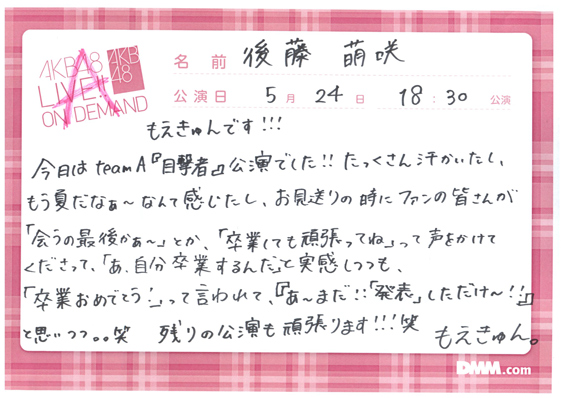 AKB48
LIVE!!
ON DEMAND
AKB
48
名前 後藤 萌咲
公演日 5月 24日 18:30 公演
もえきゅんです!!!
今日は teamA『目撃者』公演でした!! たっくさん汗かいたし、
もう夏だなぁ〜なんて感じたし、お見送りの時にファンの皆さんが
「会うの最後かぁ〜」とか、「卒業しても頑張ってね」って声をかけて
くださって、「あ、自分卒業するんだ」と実感しつつも、
「卒業おめでとう!」って言われて、『あ〜まだ!!「発表」しただけ〜!!』
と思いつつ。。笑 残りの公演も頑張ります!!!笑 もえきゅん。
DMM.com